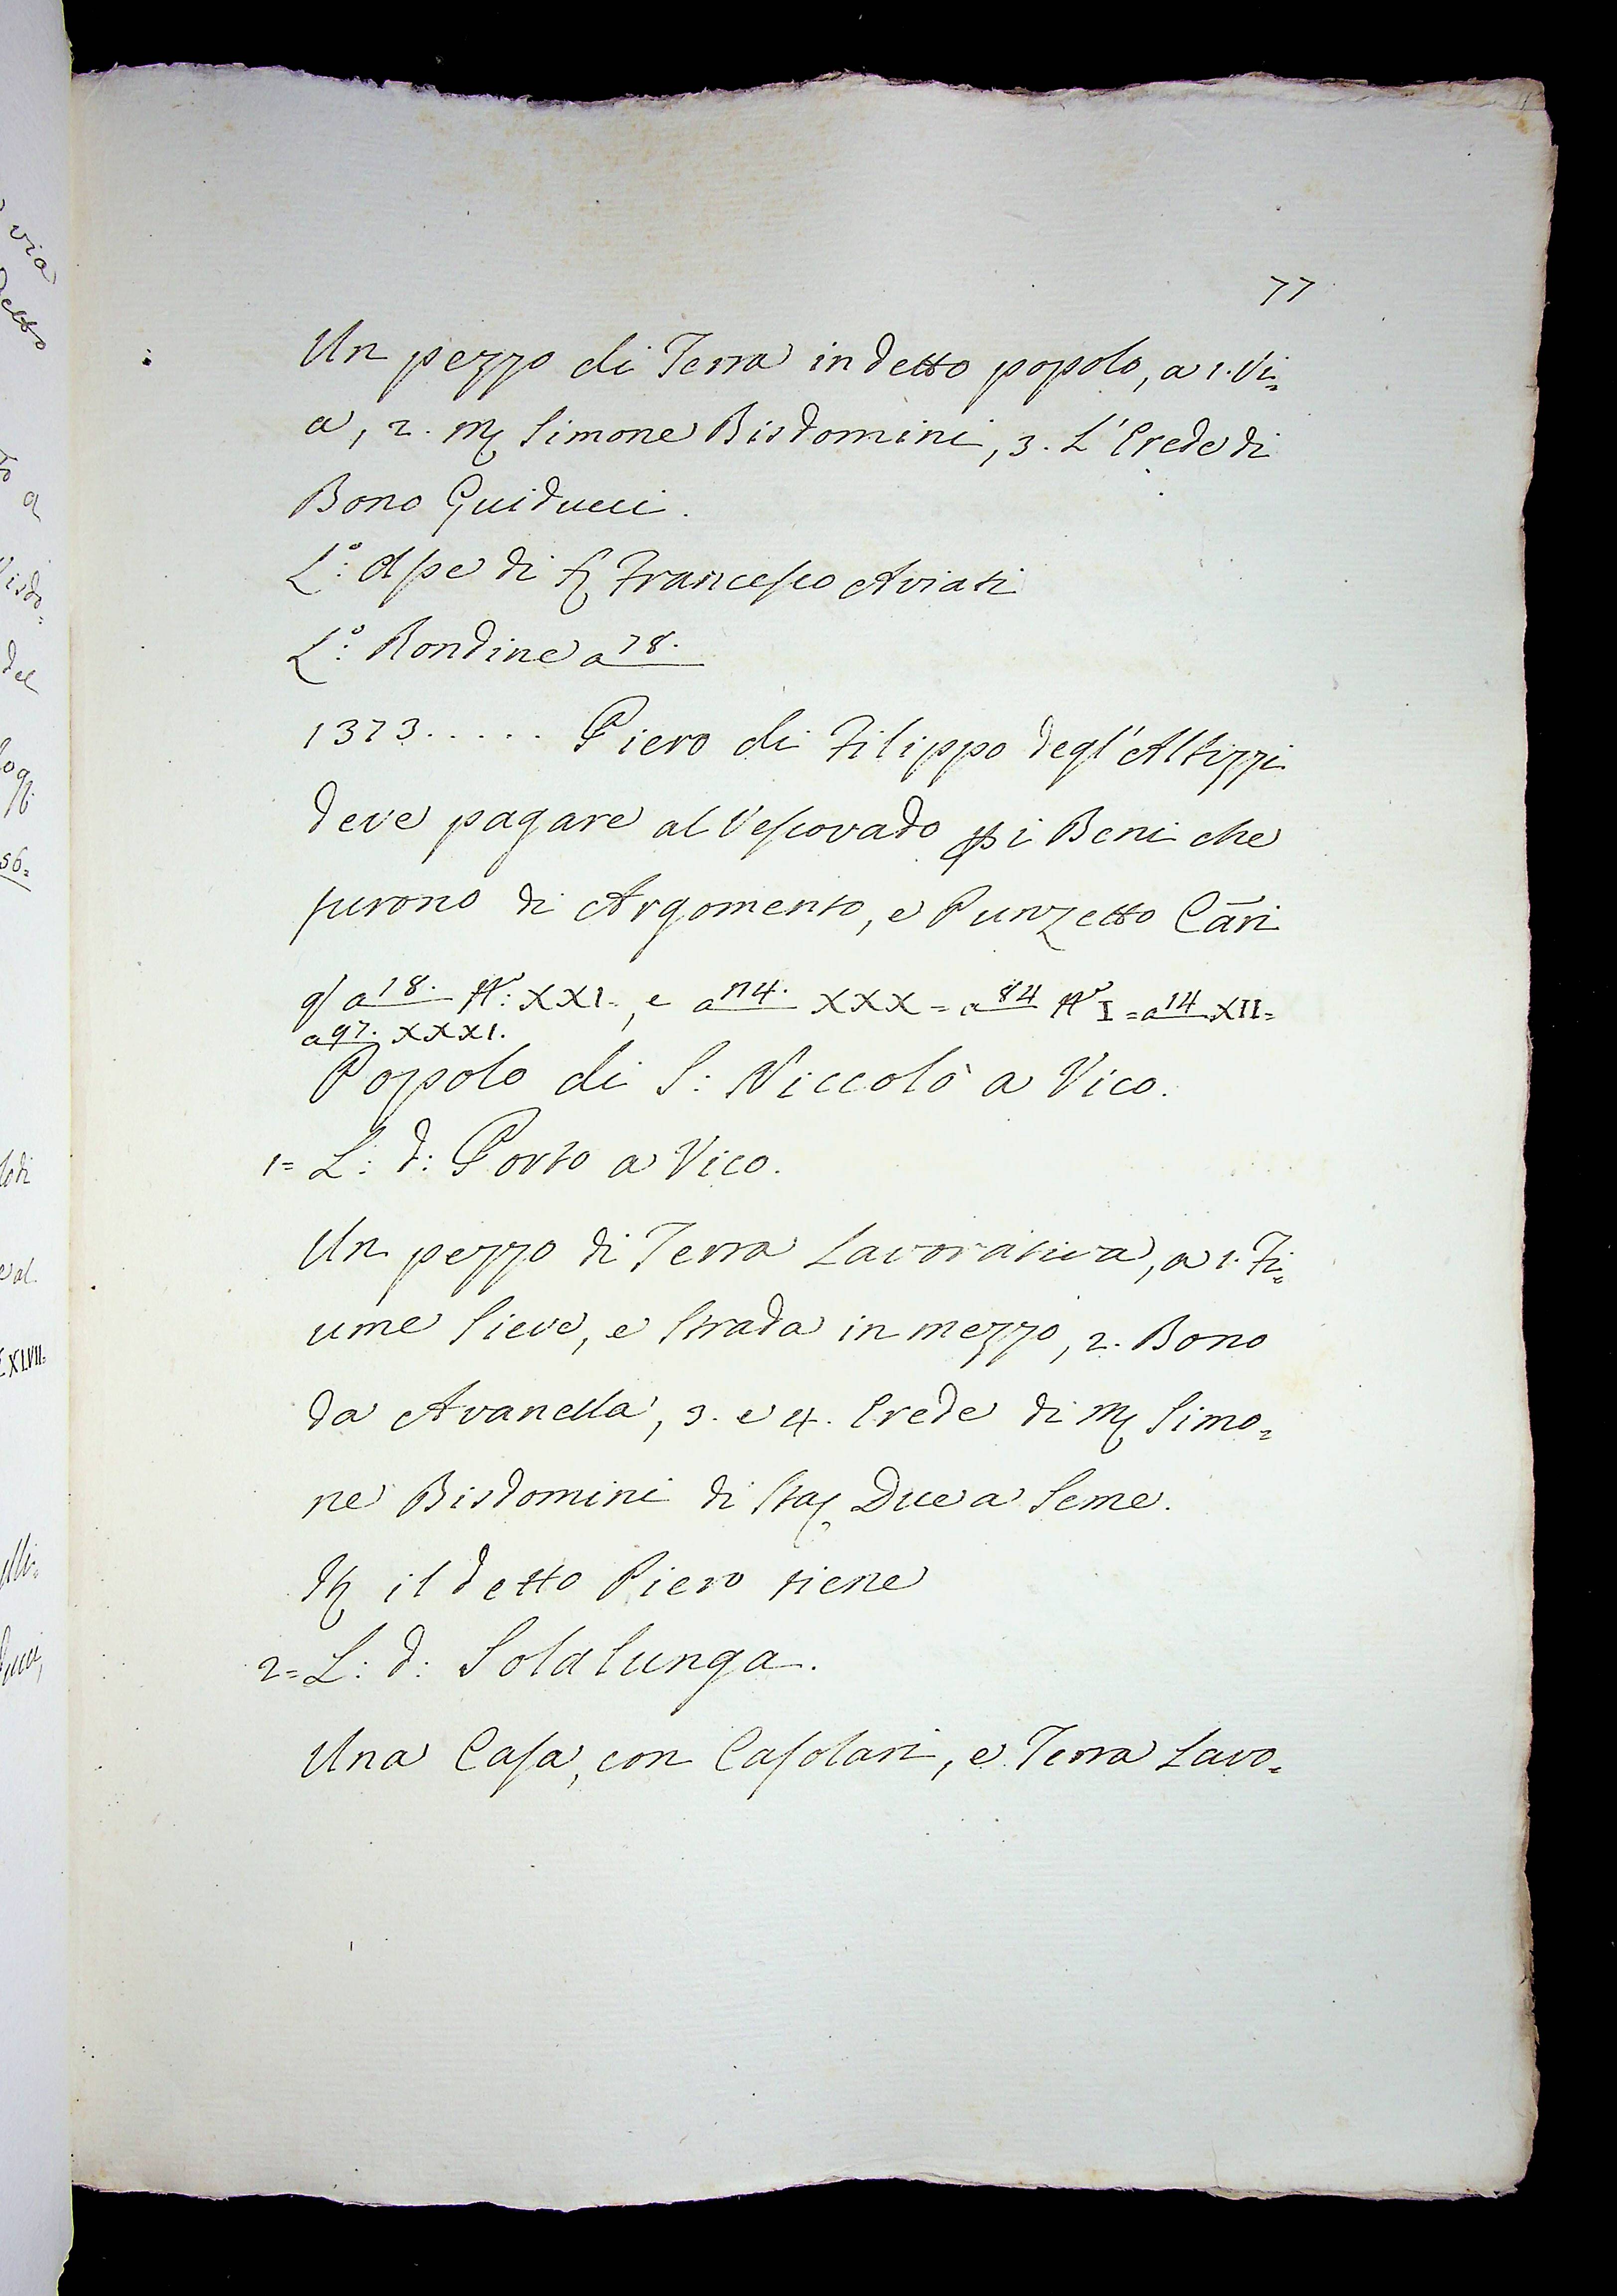 77
Un pezzo di Terra in detto popolo, a 1. Vi=
a, 2. M Simone Bisdomini, 3. L'Erede di
Bono Guiducci.
L.º Ape di S Francesco Aviati
L.º Rondine a 78.
1373..... Piero di Filippo degl'Albizzi
deve pagare al Vescovado p i Beni che
furono di Argomento, e Punzetto Cāri
q/ a 18. Nº: XXI., e a 114. XXX= a 84 Nº I= a 14 XII=
a 97. XXXI.
Popolo di S: Niccolò a Vico.
1= L: d: Porto a Vico.
Un pezzo di Terra Lavorativa, a 1. Fi=
ume Sieve, e Strada in mezzo, 2. Bono
da Avanella, 3. e 4. Erede di M Simo=
ne Bisdomini di Sta Due a Seme.
It il detto Piero tiene
2= L: d: Solalunga.
Una Casa, con Casolari, e Terra Lavo=